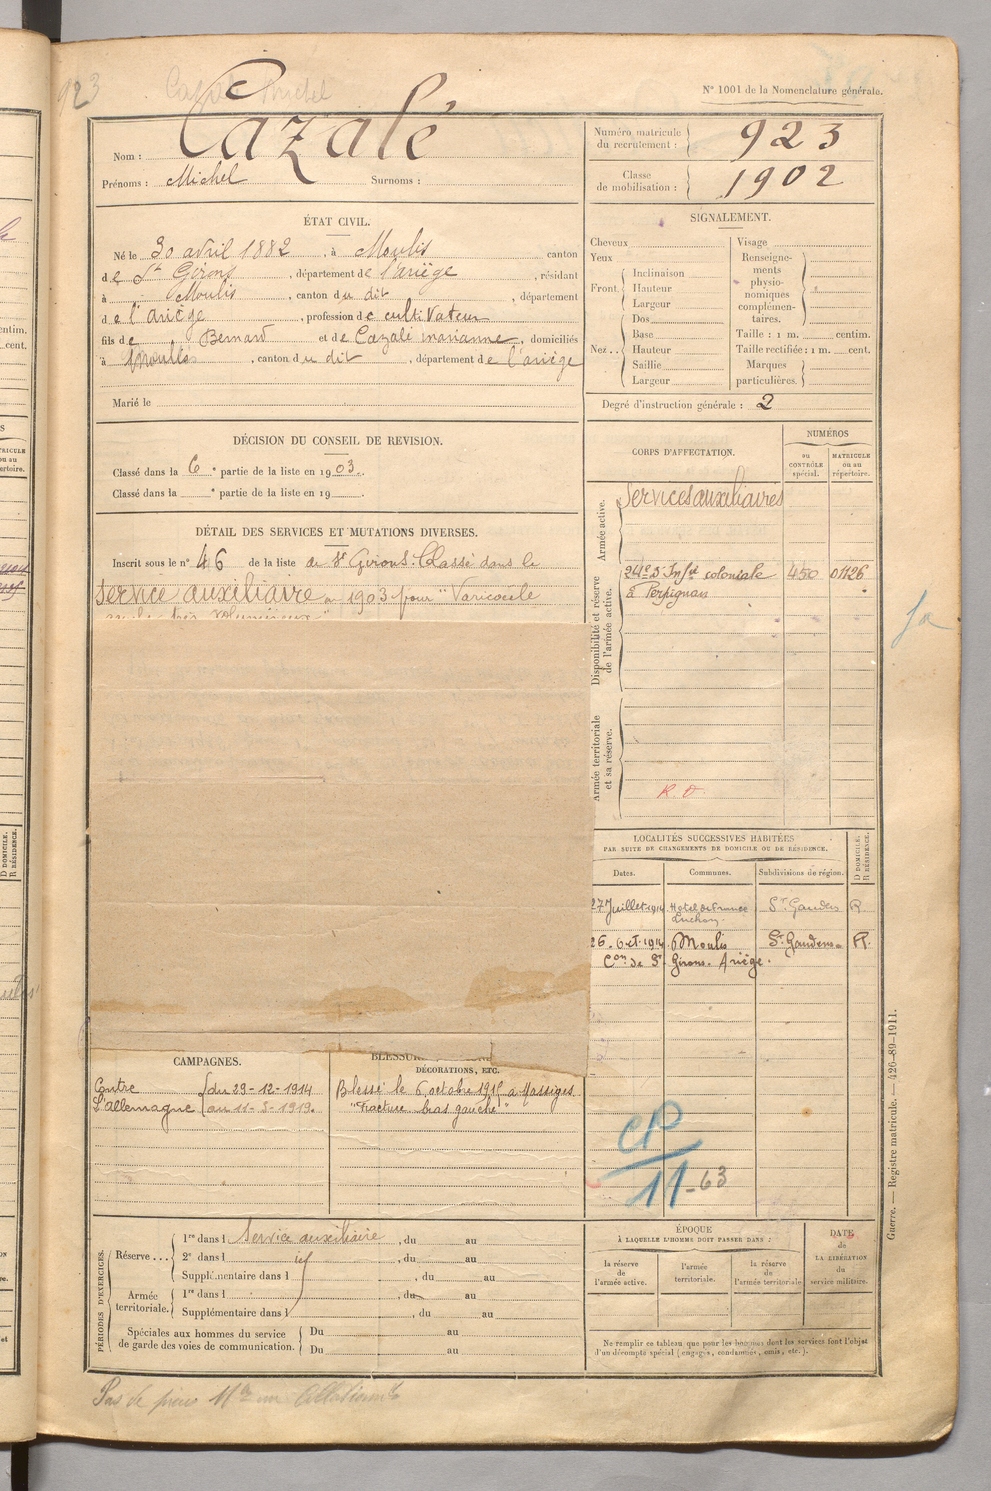 923
Cazalé Michel
N° 1001 de la Nomenclature générale.
Nom : Cazalé
Prénoms : Michel Surnoms :
Numéro matricule du recrutement : 923
Classe de mobilisation : 1902
ÉTAT CIVIL.
Né le 30 avril 1882, à Moulis canton
de St Girons, département de l'ariège, résidant
à Moulis, canton du dit, département
de l'ariège, profession de cultivateur
fils de Bernard et de Cazalé marianne, domiciliés
à Moulis, canton du dit, département de l'ariège
Marié le
SIGNALEMENT.
Cheveux
Yeux
Front. Inclinaison
Hauteur
Largeur
Nez.. Dos
Base
Hauteur
Saillie
Largeur
Visage
Renseigne-
ments
physio-
nomiques
complémen-
taires.
Taille : 1 m. centim.
Taille rectifiée : 1 m. cent.
Marques
particulières.
Degré d'instruction générale : 2
DÉCISION DU CONSEIL DE REVISION.
Classé dans la 6e partie de la liste en 1903.
Classé dans la e partie de la liste en 19
DÉTAIL DES SERVICES ET MUTATIONS DIVERSES.
Inscrit sous le n° 46 de la liste de St Girons. Classé dans le
service auxiliaire en 1903 pour "Varicocèle
très volumineux"
CORPS D'AFFECTATION.
NUMÉROS
au CONTRÔLE spécial.
MATRICULE ou au répertoire.
Armée active.
Services auxiliaires
Disponibilité et réserve de l'armée active.
24e d'Infie coloniale 450 01126
à Perpignan
Armée territoriale et sa réserve.
R.D.
LOCALITÉS SUCCESSIVES HABITÉES
PAR SUITE DE CHANGEMENTS DE DOMICILE OU DE RÉSIDENCE.
Dates. Communes. Subdivisions de région. D DOMICILE. R RÉSIDENCE.
27 Juillet 1914 Hotel de France St Gaudens R.
Luchon
26. Oct. 1914 Moulis St Gaudens R.
Con de St Girons. Ariège.
CAMPAGNES.
Contre du 29-12-1914
l'allemagne au 11-3-1919.
DÉCORATIONS, ETC.
Blessé le 6 octobre 1915 à Massiges
"Fracture bras gauche"
CP
11-63
PÉRIODES D'EXERCICES.
Réserve... 1re dans l Service auxiliaire, du au
2e dans l , du au
Supplémentaire dans l , du au
Armée territoriale. 1re dans l , du au
Supplémentaire dans l , du au
Spéciales aux hommes du service de garde des voies de communication. Du au
Du au
ÉPOQUE
À LAQUELLE L'HOMME DOIT PASSER DANS :
la réserve de l'armée active.
l'armée territoriale.
la réserve de l'armée territoriale.
DATE
de
LA LIBÉRATION
du
service militaire.
Ne remplir ce tableau que pour les hommes dont les services font l'objet
d'un décompte spécial (engagés, condamnés, omis, etc.).
Guerre. — Registre matricule. — 426-89-1911.
Pas de